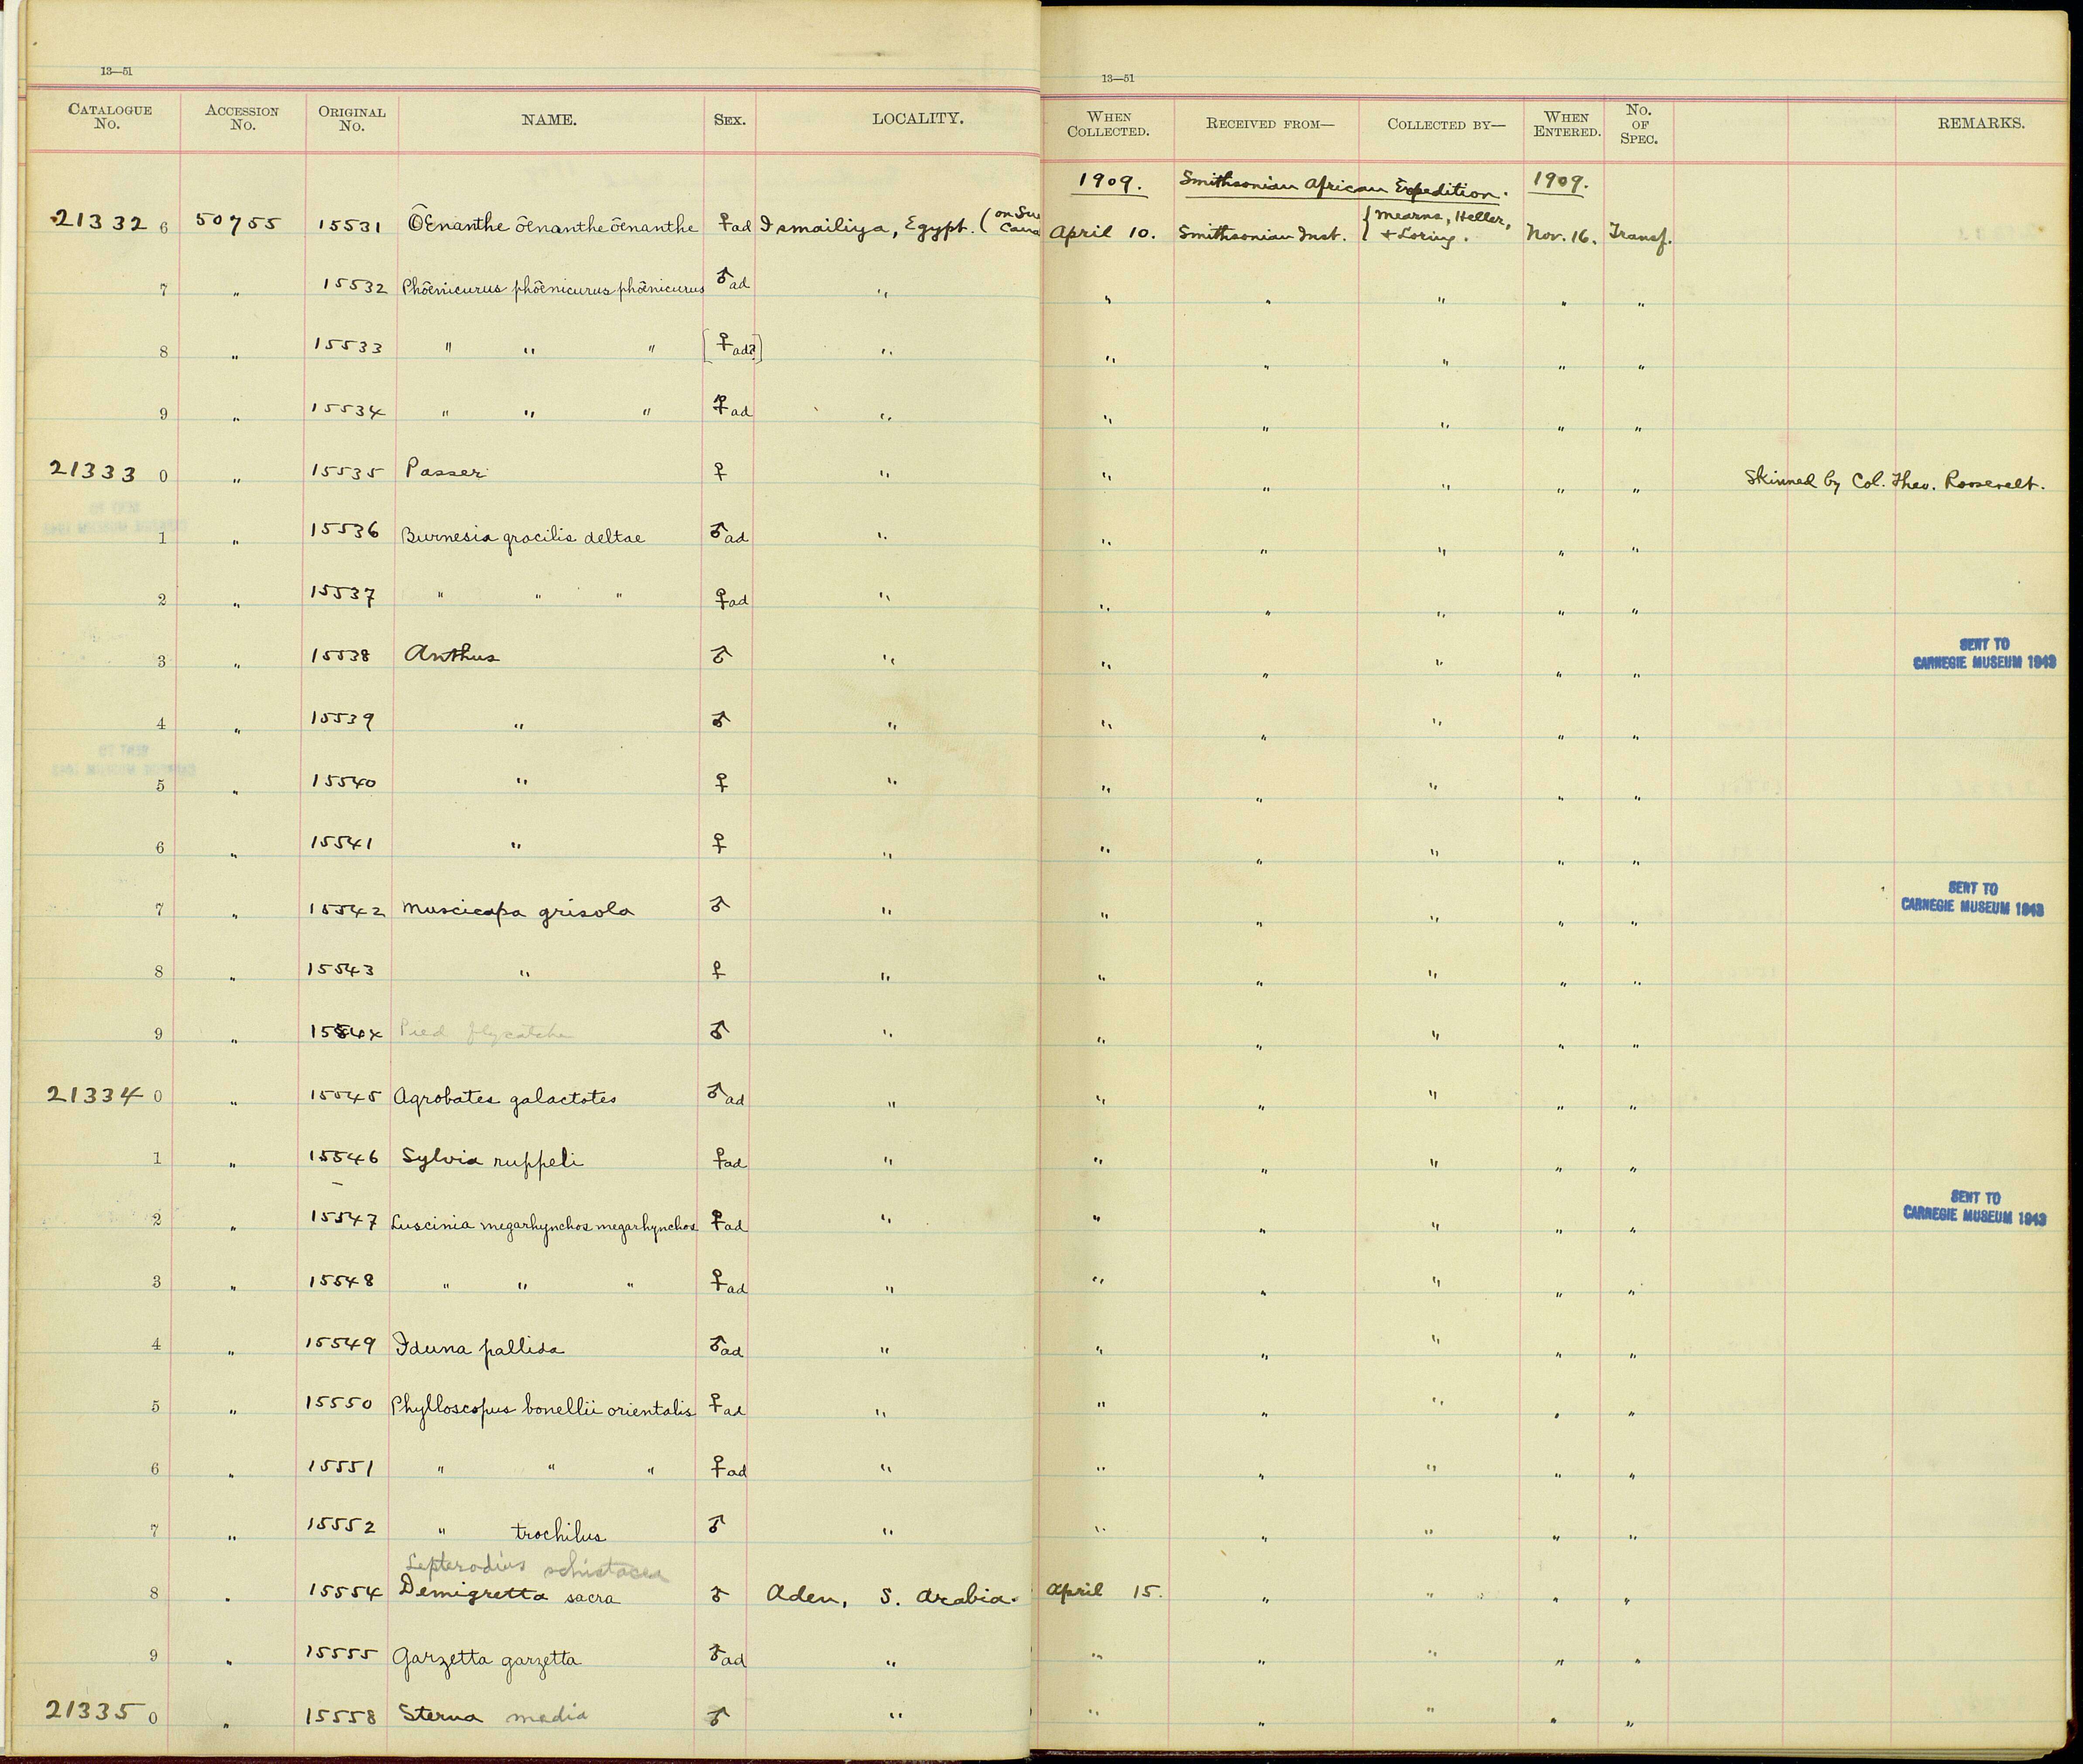 13—51 13—51
CATALOGUE No. ACCESSION No. ORIGINAL No. NAME. SEX. LOCALITY. WHEN COLLECTED. RECEIVED FROM— COLLECTED BY— WHEN ENTERED. No. OF SPEC. REMARKS.
1909. Smithsonian African Expedition. 1909.
213326 50755 15531 Œnanthe œnanthe œnanthe ♀ad Ismailiya, Egypt. (on Su Cana April 10. Smithsonian Inst. {Mearns, Heller, & Loring. Nov. 16. Transf.
7 " 15532 Phœnicurus phœnicurus phœnicurus ♂ad " " " " " "
8 " 15533 " " " [♀ad?] " " " " " "
9 " 15534 " " " ♀ad " " " " " "
213330 " 15535 Passer ♀ " " " " " " Skinned by Col. Theo. Roosevelt.
1 " 15536 Burnesia gracilis deltae ♂ad " " " " " "
2 " 15537 " " " ♀ad " " " " " "
3 " 15538 Anthus ♂ " " " " " " SENT TO CARNEGIE MUSEUM 1943
4 " 15539 " ♂ " " " " " "
5 " 15540 " ♀ " " " " " "
6 " 15541 " ♀ " " " " " "
7 " 15542 Muscicapa grisola ♂ " " " " " " SENT TO CARNEGIE MUSEUM 1943
8 " 15543 " ♀ " " " " " "
9 " 15544 Pied flycatcher ♂ " " " " " "
213340 " 15545 Agrobates galactotes ♂ad " " " " " "
1 " 15546 Sylvia ruppeli ♀ad " " " " " "
2 " 15547 Luscinia megarhynchos megarhynchos ♀ad " " " " " " SENT TO CARNEGIE MUSEUM 1943
3 " 15548 " " " ♀ad " " " " " "
4 " 15549 Iduna pallida ♂ad " " " " " "
5 " 15550 Phylloscopus bonellii orientalis ♀ad " " " " " "
6 " 15551 " " " ♀ad " " " " " "
7 " 15552 " trochilus ♂ " " " " " "
Lepterodius schistacea
8 " 15554 Demigretta sacra ♂ Aden, S. Arabia. April 15. " " " "
9 " 15555 Garzetta garzetta ♂ad " " " " " "
213350 " 15558 Sterna media ♂ " " " " " "